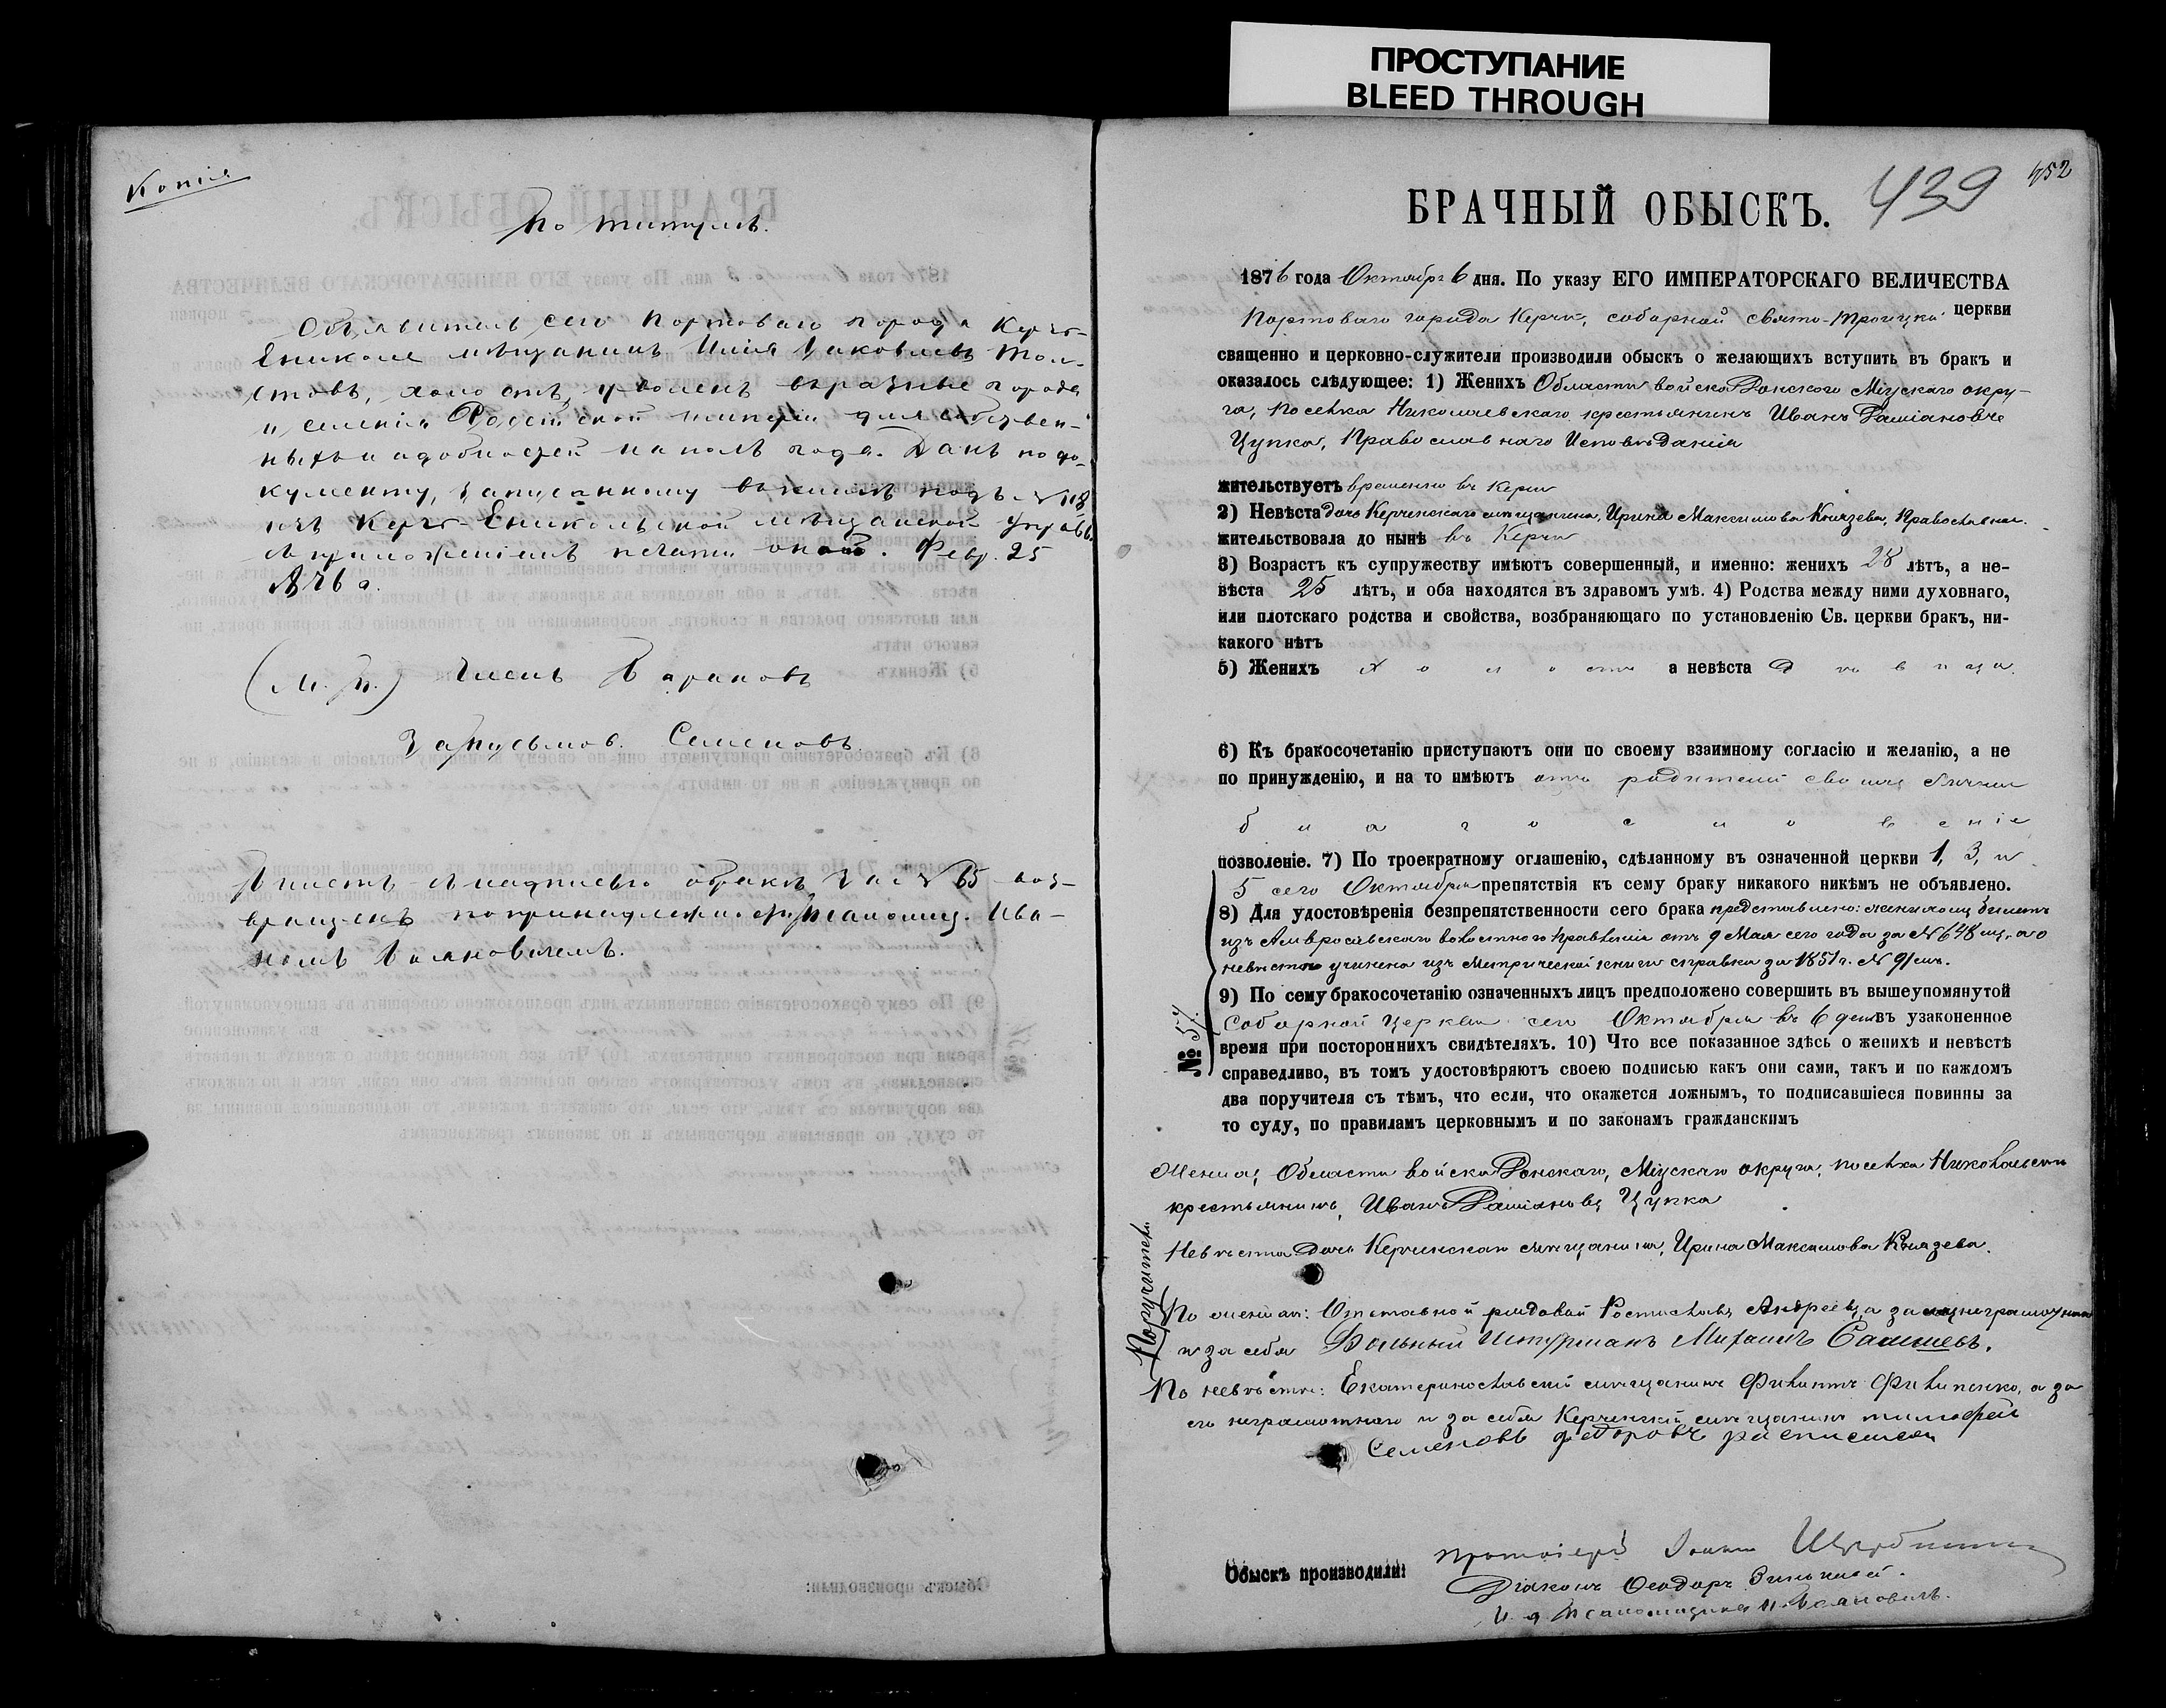 ПРОСТУПАНИЕ
BLEED THROUGH
Копія
По титулѣ.
Объявитель сего Портоваго города Керчь-
Еникале мѣщанинъ Илія Яковлевъ Тол-
стовъ, холостъ, уволенъ въ разные города
и селенія Россійской имперіи для собствен-
ныхъ надобностей на полъ года. Данъ по до-
кументу, записанному въ книгѣ подъ № 118
изъ Керчь-Еникольской мѣщанской управы
съ приложеніемъ печати оной. Февр. 25
1876 г.
(М. П.) Членъ Барановъ
За Письмов. Семеновъ
съ надписью о бракѣ за № 65 воз-
вращенъ по принадлежн. Псаломщ. Ива-
номъ
БРАЧНЫЙ ОБЫСКЪ.
439
452
1876 года Октября 6 дня. По указу ЕГО ИМПЕРАТОРСКАГО ВЕЛИЧЕСТВА
Портоваго города Керчи, соборной Свято-Троицкой церкви
священно и церковно-служители производили обыскъ о желающихъ вступить въ бракъ и
оказалось слѣдующее: 1) Женихъ Области войска Донского Міускаго окру-
га, поселка Николаевскаго крестьянинъ Иванъ Даміановъ
Цупка, Православнаго Исповѣданія
жительствуетъ временно въ Керчи
2) Невѣста дочь Керченскаго мѣщанина, Ирина Максимова Князева, Православная.
жительствовала до нынѣ въ Керчи
3) Возрастъ къ супружеству имѣютъ совершенный, и именно: женихъ 28 лѣтъ, а не-
вѣста 25 лѣтъ, и оба находятся въ здравомъ умѣ. 4) Родства между ними духовнаго,
или плотскаго родства и свойства, возбраняющаго по установленію Св. церкви бракъ, ни-
какого нѣтъ
5) Женихъ холостъ а невѣста дѣвица.
6) Къ бракосочетанію приступаютъ они по своему взаимному согласію и желанію, а не
по принужденію, и на то имѣютъ отъ родителей своихъ
благословеніе
позволеніе. 7) По троекратному оглашенію, сдѣланному въ означенной церкви 1, 3, и
5 сего Октября препятствія къ сему браку никакого никѣмъ не объявлено.
8) Для удостовѣренія безпрепятственности сего брака представлено: женихомъ билетъ
изъ Амвросіевскаго волостного правленія отъ 9 Мая сего года за № 648 а о
невѣстѣ учинена изъ Метрической книги справка за 1851 г. № 91
№ 57.
9) По сему бракосочетанію означенныхъ лицъ предположено совершить въ вышеупомянутой
Соборной Церкви сего Октября въ 6 день въ узаконенное
время при постороннихъ свидѣтеляхъ. 10) Что все показанное здѣсь о женихѣ и невѣстѣ
справедливо, въ томъ удостовѣряютъ своею подписью какъ они сами, такъ и по каждомъ
два поручителя съ тѣмъ, что если, что окажется ложнымъ, то подписавшіеся повинны за
то суду, по правиламъ церковнымъ и по законамъ гражданскимъ
Женихъ, Области войска Донскаго, Міускаго округа, поселка Николаевскаго
крестьянинъ, Иванъ Даміановъ Цупка
Невѣста Дочь Керченскаго мѣщанина, Ирина Максимова Князева.
Поручители
По женихѣ: Отставной рядовой Ростиславъ Андреевъ, а за неграмотнаго
и за себя Вольный Штурманъ Михаилъ
По невѣстѣ: Екатеринославскій мѣщанинъ Филиппъ Филипенко, а за
его неграмотнаго и за себя Керченскій мѣщанинъ тимофей
Семеновъ федоровъ расписался
Обыскъ производили:
протоіерей Іоаннъ
Діаконъ Ѳеодоръ
И. д. Псаломщика И.